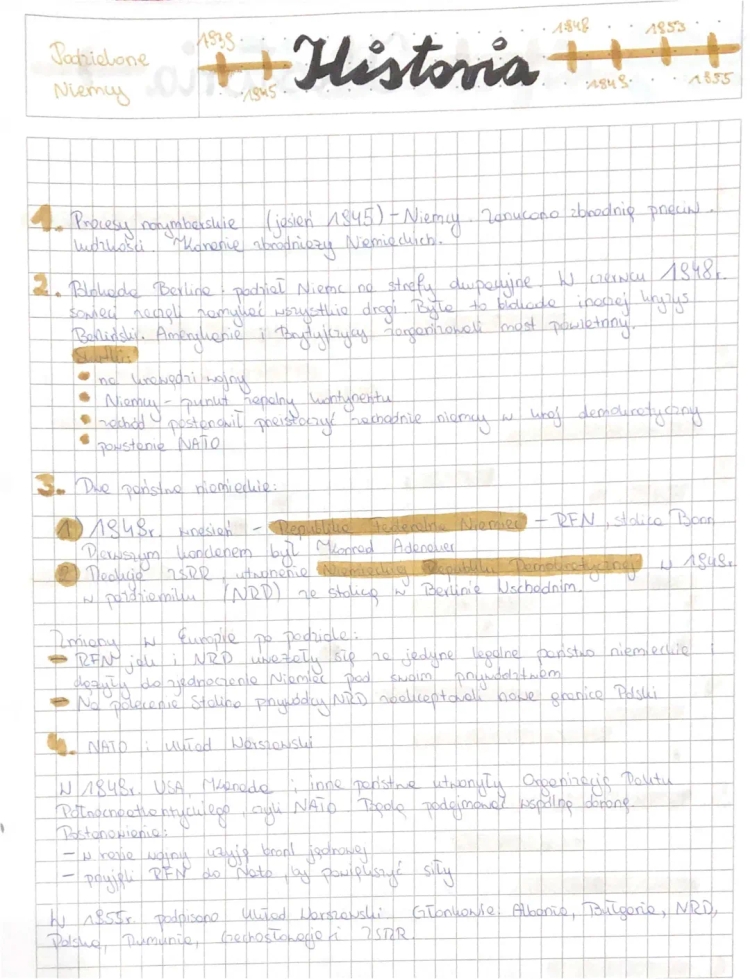 Podzielone
Niemcy
1939
1945
Historia
1948
1949
1953
1955
1. Procesy norymberskie (jesień 1945) - Niemcy. Zarzucono zbrodnię przeciw
ludzkości. Karanie zbrodniarzy Niemieckich.
2. Blokada Berlina i podział Niemc na strefy okupacyjne. W czerwcu 1948r.
sowieci zaczęli zamykać wszystkie drogi. Była to blokada inaczej kryzys
Berliński. Amerykanie i Brytyjczycy zorganizowali most powietrzny.
Skutki:
• na krawędzi wojny
• Niemcy - punkt zapalny kontynentu
• zachód postanowił przeistoczyć zachodnie niemcy w kraj demokratyczny
• powstanie NATO
3. Dwa państwa niemieckie:
1) 1949r. wrzesień - Republika Federalna Niemiec - RFN, stolica Bonn
Pierwszym kanclerzem był Konrad Adenauer
2) Reakcja ZSRR, utworzenie Niemieckiej Republiki Demokratycznej w 1949r.
w październiku (NRD) ze stolicą w Berlinie Wschodnim.
Zmiany w Europie po podziale:
- RFN jak i NRD uważały się za jedyne legalne państwo niemieckie i
dążyły do zjednoczenia Niemiec pod swoim przywództwem
- Na polecenie Stalina przywódcy NRD zaakceptowali nowe granice Polski
4. NATO i Układ Warszawski
W 1949r. USA, Kanada i inne państwa utworzyły Organizację Paktu
Północnoatlantyckiego, czyli NATO. Będą podejmować wspólną obronę.
Postanowienia:
- w razie wojny użyją broni jądrowej
- przyjęli RFN do Nato, by powiększyć siły
W 1955r. podpisano Układ Warszawski. Członkowie: Albania, Bułgaria, NRD,
Polska, Rumunia, Czechosłowacja i ZSRR.